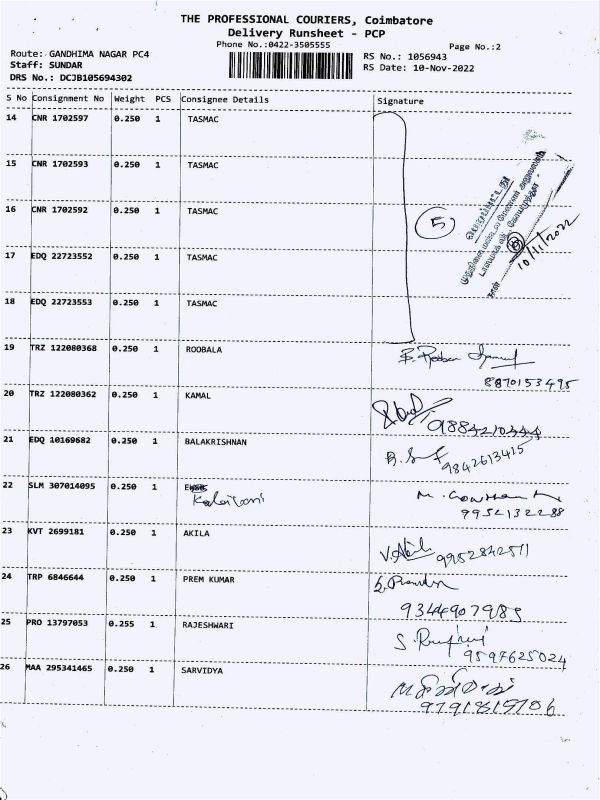 THE PROFESSIONAL COURIERS, Coimbatore
Delivery Runsheet - PCP
Phone No.:0422-3505555
Page No.:2
Route: GANDHIMA NAGAR PC4
RS No.: 1056943
Staff: SUNDAR
RS Date: 10-Nov-2022
DRS No.: DCJB105694302
S No Consignment No Weight PCS Consignee Details Signature
14 CNR 1702597 0.250 1 TASMAC
15 CNR 1702593 0.250 1 TASMAC
16 CNR 1702592 0.250 1 TASMAC
5
10/11/2022
17 EDQ 22723552 0.250 1 TASMAC
18 EDQ 22723553 0.250 1 TASMAC
19 TRZ 122080368 0.250 1 ROOBALA
8870153495
20 TRZ 122080362 0.250 1 KAMAL
9884210444
21 EDQ 10169682 0.250 1 BALAKRISHNAN
9842613415
22 SLM 307014095 0.250 1
Kalaivani
9952132288
23 KVT 2699181 0.250 1 AKILA
9952842511
24 TRP 6846644 0.250 1 PREM KUMAR
9344907985
25 PRO 13797053 0.255 1 RAJESHWARI
9597625024
26 MAA 295341465 0.250 1 SARVIDYA
9791819706